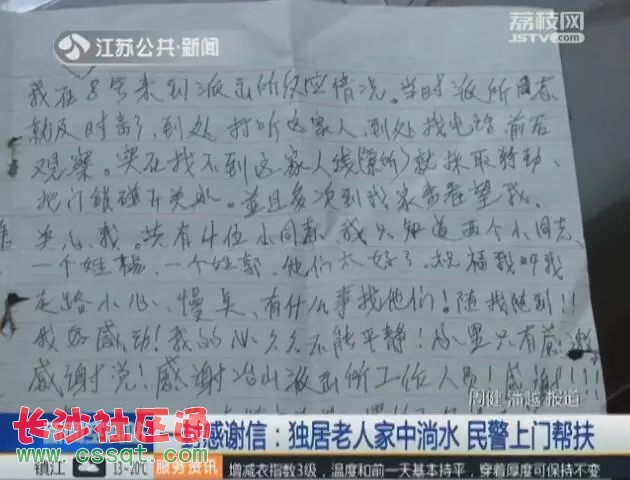 江苏公共·新闻
荔枝网
JSTV.com
我在8号来到派出所反应情况。当时派所同志
就及时去了,到处打听这家人,到处找电话前后
观察。实在找不到这家人线(索所)就採取行动、
把门锁碰开关水。並且多次到我家来看望我。
关心我。共有4位小同志,我只知道两个小同志、
一个姓杨、一个姓郭,他们太好了。祝福我叫我
走路小心、慢点、有什么事找他们!随我随到!!
我好感动!我的心久久不能平静!心里只有感谢
感谢说!感谢冶山派出所工作人员!感谢!!!!
周健 潘越 报道
感谢信:独居老人家中淌水 民警上门帮扶
长沙社区通
www.cssqt.com
镇江 13~20℃ 服务资讯 增减衣指数3级,温度和前一天基本持平,穿着厚度可保持不变